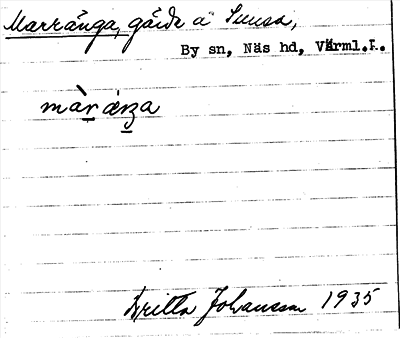 Marränga, gärde å Smnsa,
By sn, Näs hd, Värml.l.
màr̲áŋ̲a
Britta Johansson 1935